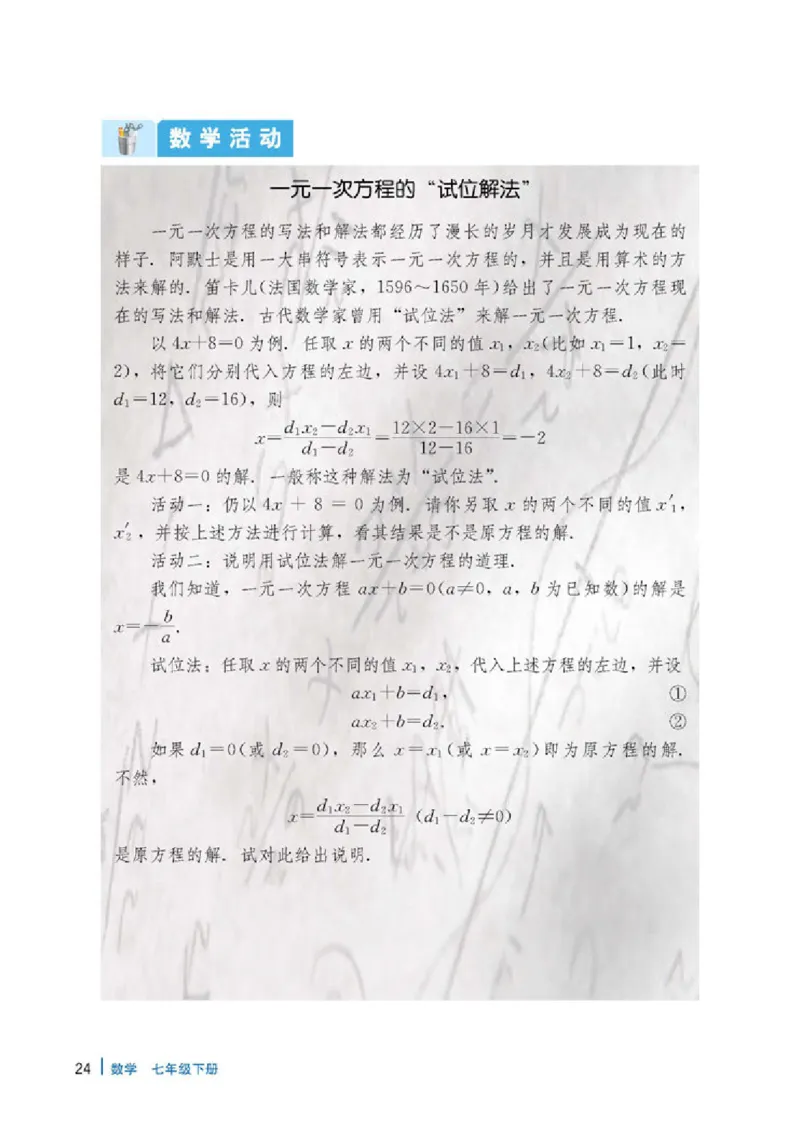 数学活动
一元一次方程的“试位解法”
一元一次方程的写法和解法都经历了漫长的岁月才发展成为现在的
样子. 阿默士是用一大串符号表示一元一次方程的, 并且是用算术的方
法来解的. 笛卡儿(法国数学家, 1596～1650 年)给出了一元一次方程现
在的写法和解法. 古代数学家曾用“试位法”来解一元一次方程.
以 4x+8=0 为例. 任取 x 的两个不同的值 x₁, x₂(比如 x₁=1, x₂=
2), 将它们分别代入方程的左边, 并设 4x₁+8=d₁, 4x₂+8=d₂(此时
d₁=12, d₂=16), 则
x=(d₁x₂-d₂x₁)/(d₁-d₂)=(12×2-16×1)/(12-16)=-2
是 4x+8=0 的解. 一般称这种解法为“试位法”.
活动一: 仍以 4x + 8 = 0 为例. 请你另取 x 的两个不同的值 x′₁,
x′₂, 并按上述方法进行计算, 看其结果是不是原方程的解.
活动二: 说明用试位法解一元一次方程的道理.
我们知道, 一元一次方程 ax+b=0(a≠0, a, b 为已知数)的解是
x=-b/a.
试位法: 任取 x 的两个不同的值 x₁, x₂, 代入上述方程的左边, 并设
ax₁+b=d₁, ①
ax₂+b=d₂. ②
如果 d₁=0(或 d₂=0), 那么 x=x₁(或 x=x₂)即为原方程的解.
不然,
x=(d₁x₂-d₂x₁)/(d₁-d₂) (d₁-d₂≠0)
是原方程的解. 试对此给出说明.
24 数学 七年级下册